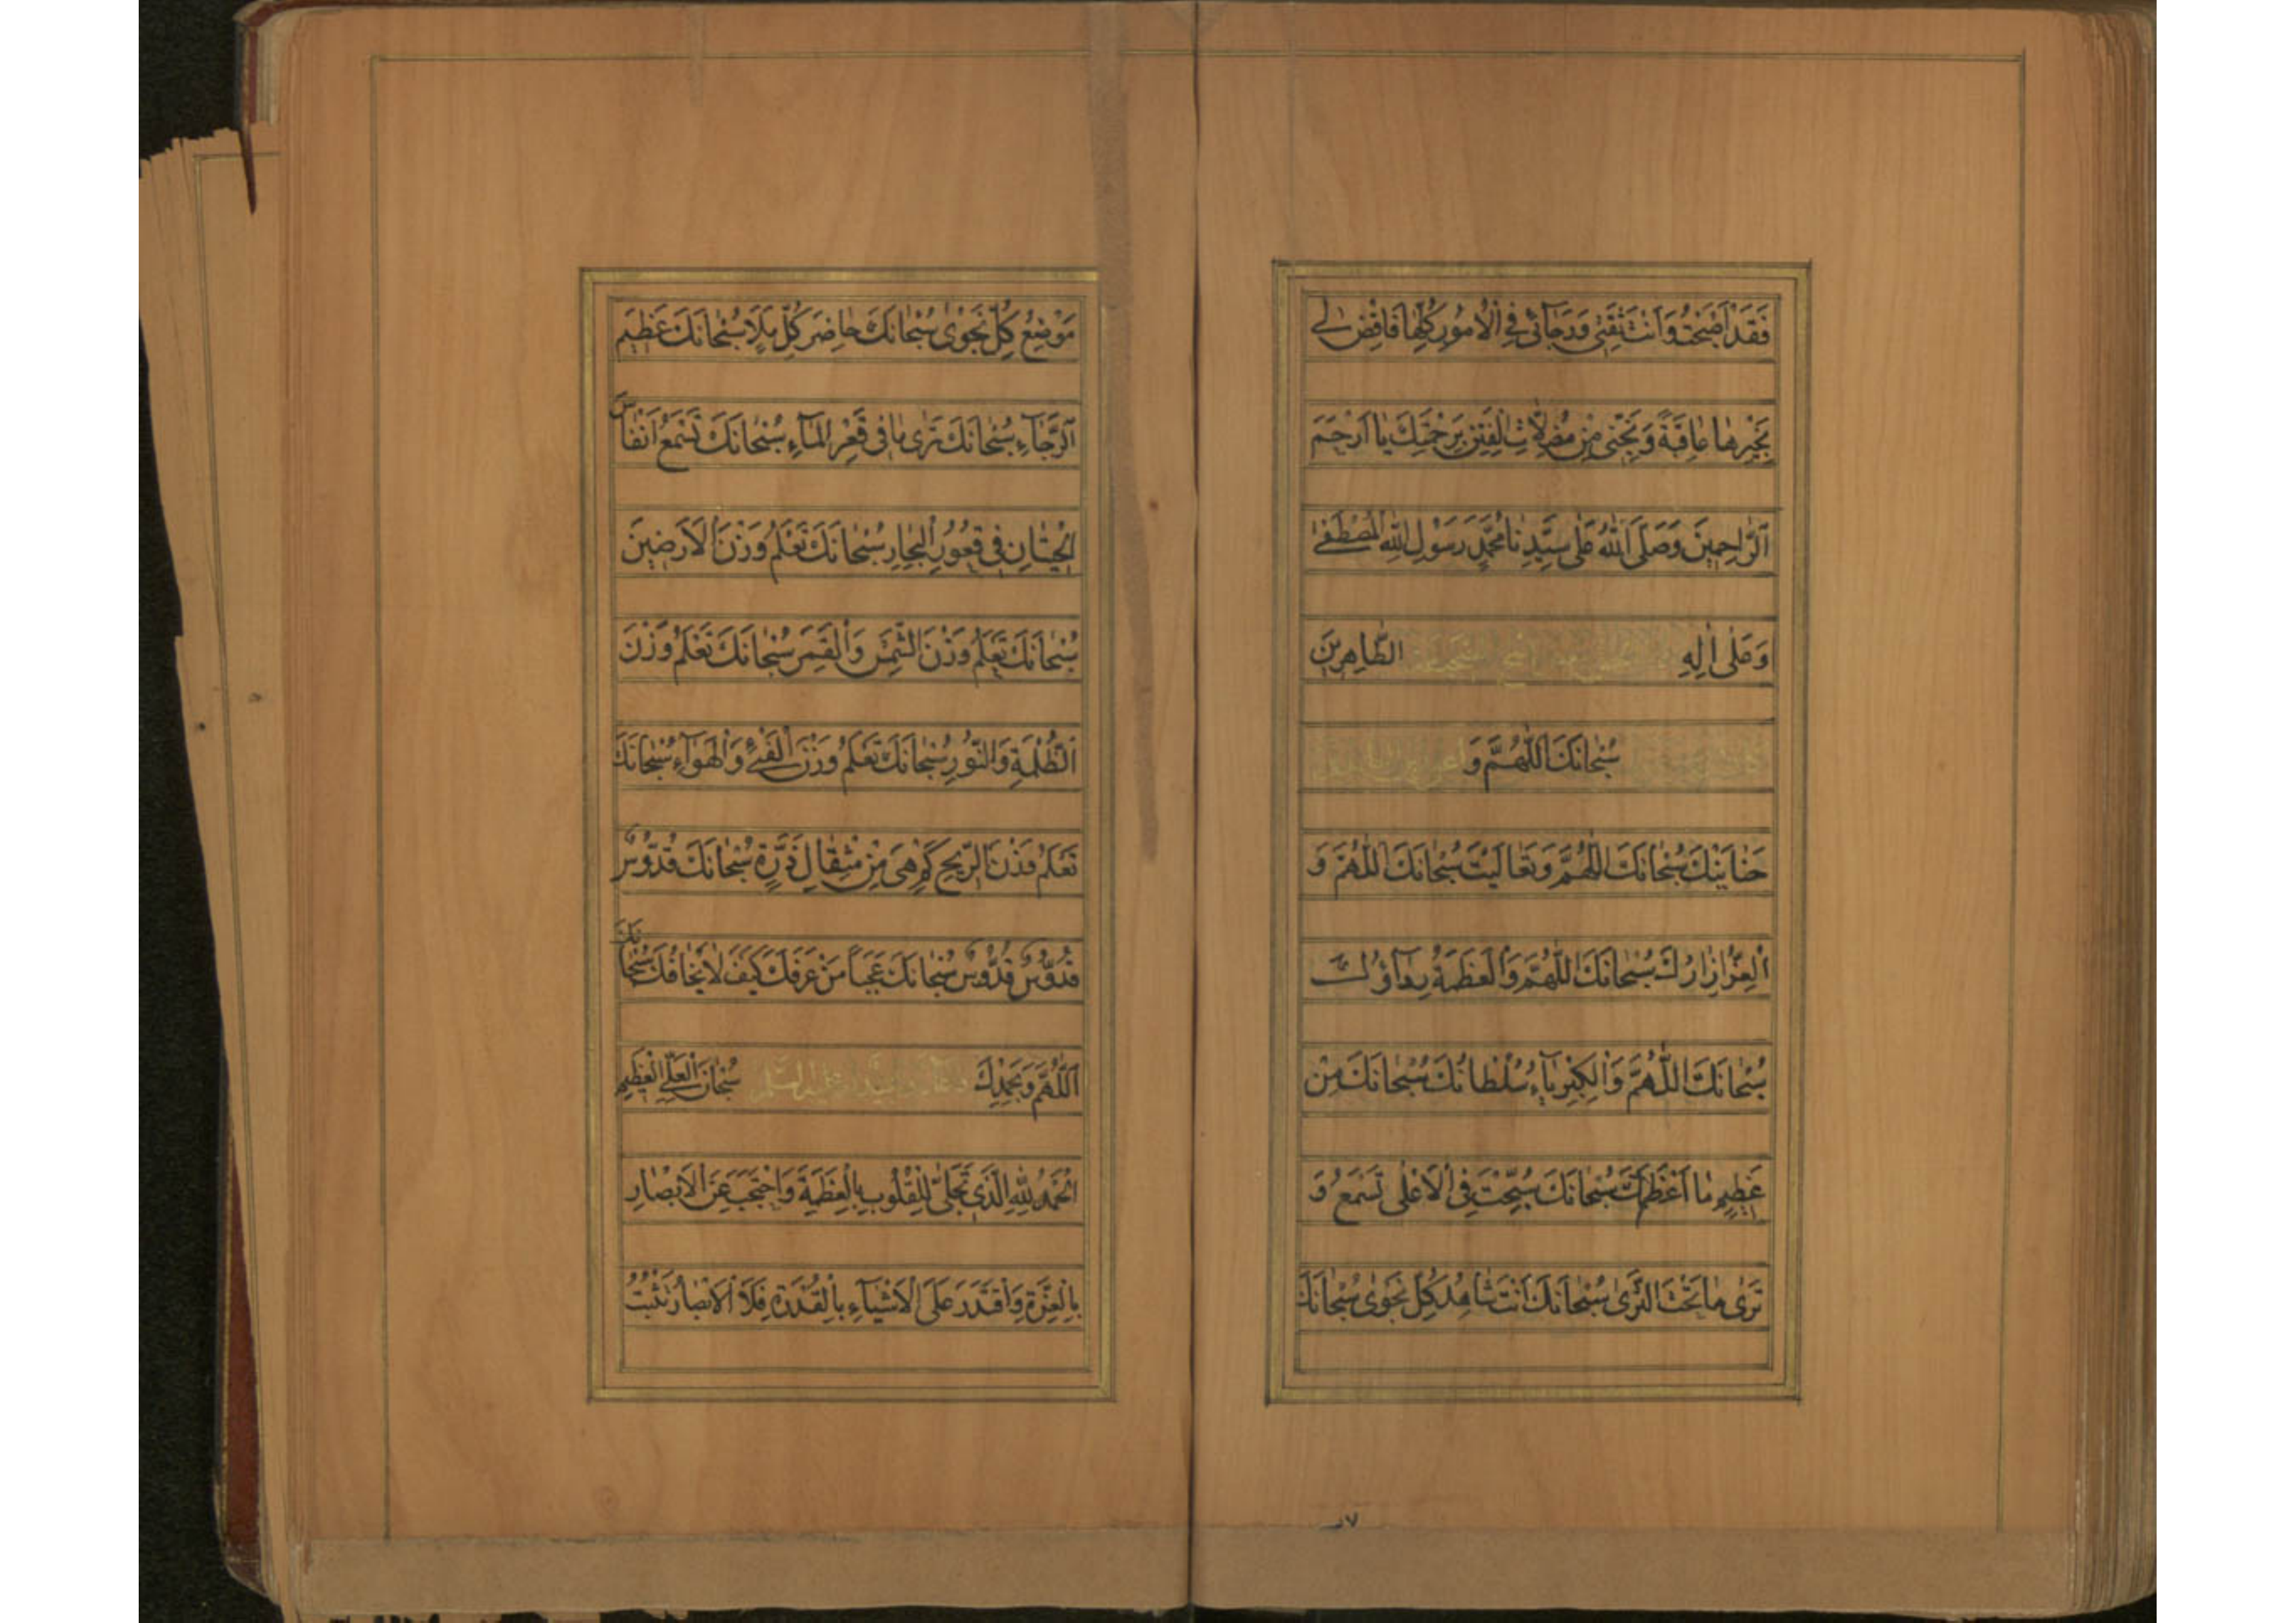 فَقَدْ اَصْبَحْتُ وَاَنْتَ ثِقَتِی وَرَجآئی فِی الْاُمُورِ كُلِّها فَاقْضِ لی
بِخَیْرِها عاقِبَةً وَنَجِّنی مِنْ مُضِلّاتِ الْفِتَنِ بِرَحْمَتِكَ یا اَرْحَمَ
الرّاحِمینَ وَصَلَّی اللّٰهُ عَلٰی سَیِّدِنا مُحَمَّدٍ رَسُولِ اللّٰهِ الْمُصْطَفٰی
وَعَلٰی اٰلِهِ الطّاهِرینَ
سُبْحانَكَ اللّٰهُمَّ وَ
حَنانَیْكَ سُبْحانَكَ اللّٰهُمَّ وَتَعالَیْتَ سُبْحانَكَ اللّٰهُمَّ وَ
الْعِزُّ اِزارُكَ سُبْحانَكَ اللّٰهُمَّ وَالْعَظَمَةُ رِدآؤُكَ
سُبْحانَكَ اللّٰهُمَّ وَالْكِبْرِیآءُ سُلْطانُكَ سُبْحانَكَ مِنْ
عَظیمٍ ما اَعْظَمَكَ سُبْحانَكَ سُبِّحْتَ فِی الْاَعْلٰی تَسْمَعُ وَ
تَرٰی ما تَحْتَ الثَّرٰی سُبْحانَكَ اَنْتَ شاهِدُ كُلِّ نَجْوٰی سُبْحانَكَ
٧
مَوْضِعُ كُلِّ نَجْوٰی سُبْحانَكَ حاضِرَ كُلِّ بَلَاءٍ سُبْحانَكَ عَظیمَ
الرَّجآءِ سُبْحانَكَ تَرٰی ما فی قَعْرِ الْمآءِ سُبْحانَكَ تَسْمَعُ اَنْفاسَ
الْحیتانِ فی قُعُورِ الْبِحارِ سُبْحانَكَ تَعْلَمُ وَزْنَ الْاَرَضینَ
سُبْحانَكَ تَعْلَمُ وَزْنَ الشَّمْسِ وَالْقَمَرِ سُبْحانَكَ تَعْلَمُ وَزْنَ
الظُّلْمَةِ وَالنُّورِ سُبْحانَكَ تَعْلَمُ وَزْنَ الْفَیْءِ وَالْهَوآءِ سُبْحانَكَ
تَعْلَمُ وَزْنَ الرّیحِ كَمْ هِیَ مِنْ مِثْقالِ ذَرَّةٍ سُبْحانَكَ قُدُّوسٌ
قُدُّوسٌ قُدُّوسٌ سُبْحانَكَ عَجَباً مَنْ عَرَفَكَ كَیْفَ لا یَخافُكَ سُبْحانَكَ
اللّٰهُمَّ وَبِحَمْدِكَ سُبْحانَ الْعَلِیِّ الْعَظیمِ
الْحَمْدُ لِلّٰهِ الَّذی تَجَلّٰی لِلْقُلُوبِ بِالْعَظَمَةِ وَاحْتَجَبَ عَنِ الْاَبْصارِ
بِالْعِزَّةِ وَاقْتَدَرَ عَلَی الْاَشْیآءِ بِالْقُدْرَةِ فَلَا الْاَبْصارُ تَثْبُتُ